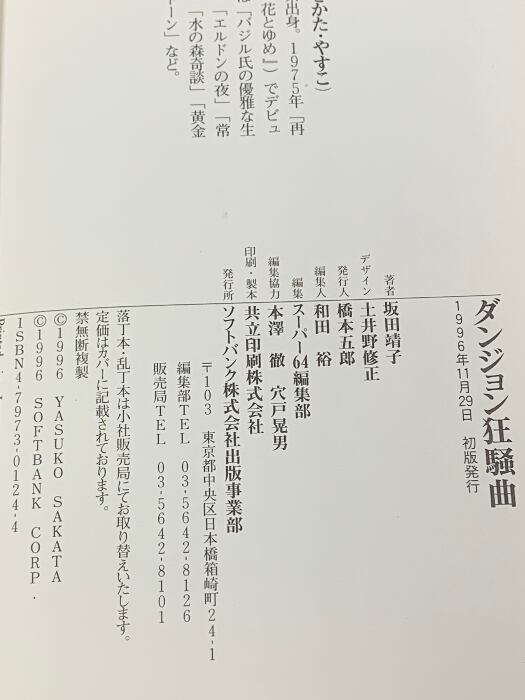 かた・やすこ）
出身。1975年「再
花とゆめ』）でデビュ
「バジル氏の優雅な生
「エルドンの夜」「常
「水の森奇談」「黄金
ーン」など。
ダンジョン狂騒曲
1996年11月29日　初版発行
著者　坂田靖子
デザイン　土井野修正
発行人　橋本五郎
編集人　和田　裕
編集　スーパー64編集部
編集協力　本澤　徹　穴戸晃男
印刷・製本　共立印刷株式会社
発行所　ソフトバンク株式会社出版事業部
〒103　東京都中央区日本橋箱崎町24-1
編集部TEL　03-5642-8126
販売局TEL　03-5642-8101
落丁本・乱丁本は小社販売局にてお取り替えいたします。
定価はカバーに記載されております。
禁無断複製
©1996 YASUKO SAKATA
©1996 SOFTBANK CORP.
ISBN4-7973-0124-4